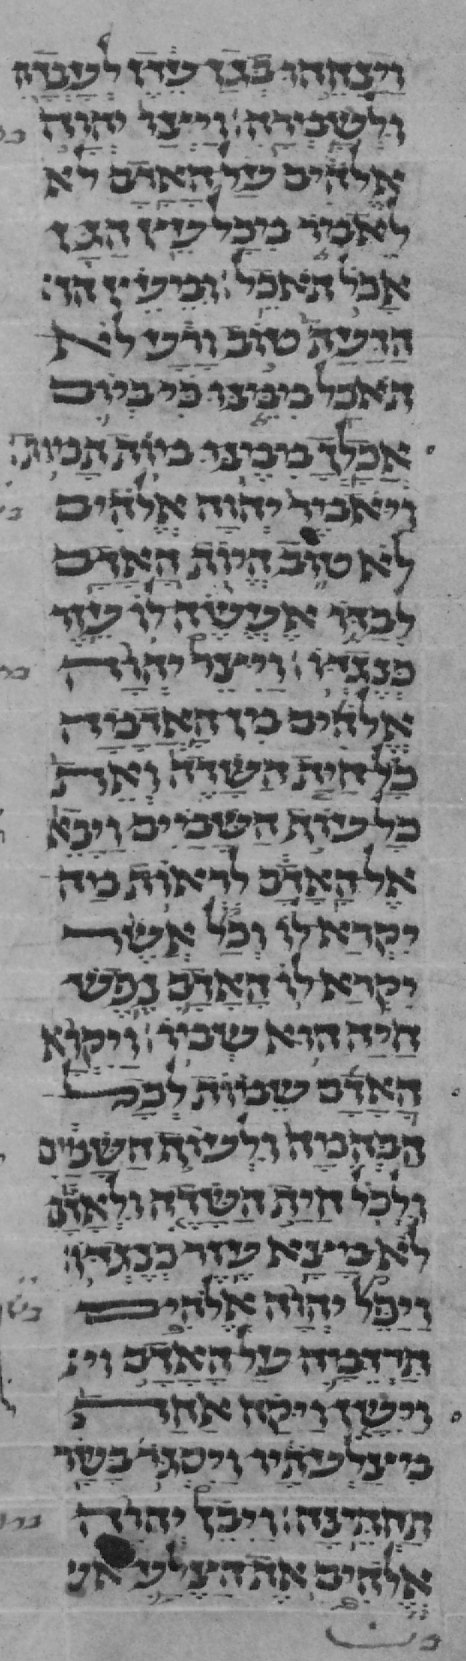 וינחהו בגן עדן לעבדה
ולשמרה׃ ויצו יהוה
אלהים על האדם לא
לאמר מכל עץ הגן
אכל תאכל׃ ומעץ הד
הדעת טוב ורע לא
תאכל ממנו כי ביום
אכלך ממנו מות תמות׃
ויאמר יהוה אלהים
לא טוב היות האדם
לבדו אעשה לו עזר
כנגדו׃ ויצר יהוה
אלהים מן האדמה
כל חית השדה ואת
כל עוף השמים ויבא
אל האדם לראות מה
יקרא לו וכל אשר
יקרא לו האדם נפש
חיה הוא שמו׃ ויקרא
האדם שמות לכל
הבהמה ולעוף השמים
ולכל חית השדה ולאדם
לא מצא עזר כנגדו׃
ויפל יהוה אלהים
תרדמה על האדם וי
ויישן ויקח אחת
מצלעתיו ויסגר בשר
תחתנה׃ ויבן יהוה
אלהים את הצלע אש